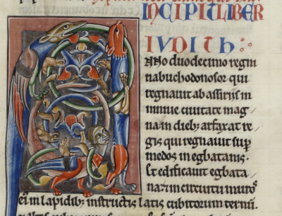 INCIPIT LIBER
IUDITH:
NNO duodecimo regni
nabuchodonosor qui
regnauit ab assiriis in
niniue ciuitate mag
na in dieb; arfaxat re
gis qui regnauit sup
medos in egbatanis.
et edificauit egbata
nas in circuitu muros
ei; in lapidib; instructis latis cubitorum terni